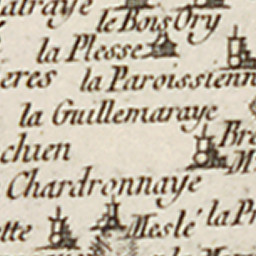 le Bois Ory
la Plesse
eres la Paroissienn
la Guillemaraye
Bre
chien
Chardronnaye
ette Meslé la Pr